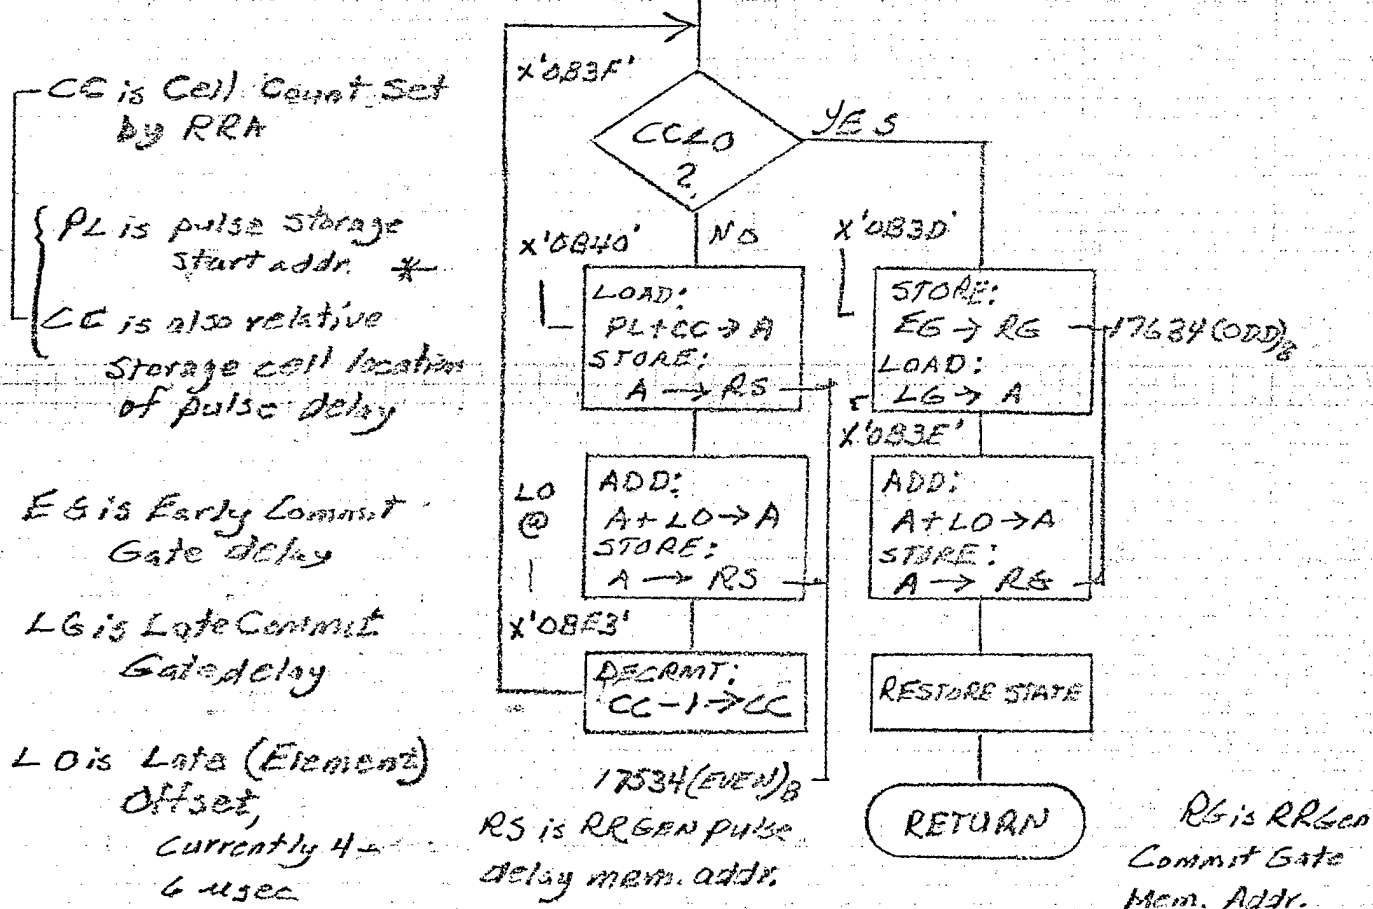 CC is Cell Count Set
by RRA
PL is pulse storage
start addr. *
CC is also relative
storage cell location
of pulse delay
EG is Early Commit
Gate delay
LG is Late Commit
Gate delay
LO is Late (Element)
Offset,
Currently 4-
6 usec
X'0B3F'
CC<0
?
YES
NO
X'0B40'
LOAD:
PL+CC→A
STORE:
A → RS
LO
@
X'0BE3'
ADD:
A+LO→A
STORE:
A → RS
DECRMT:
CC-1→CC
17534(EVEN)8
RS is RRGEN pulse
delay mem. addr.
X'0B3D'
STORE:
EG → RG
LOAD:
LG → A
17634(ODD)8
X'0B3E'
ADD:
A+LO→A
STORE:
A → RG
RESTORE STATE
RETURN
RG is RRGen
Commit Gate
Mem. Addr.